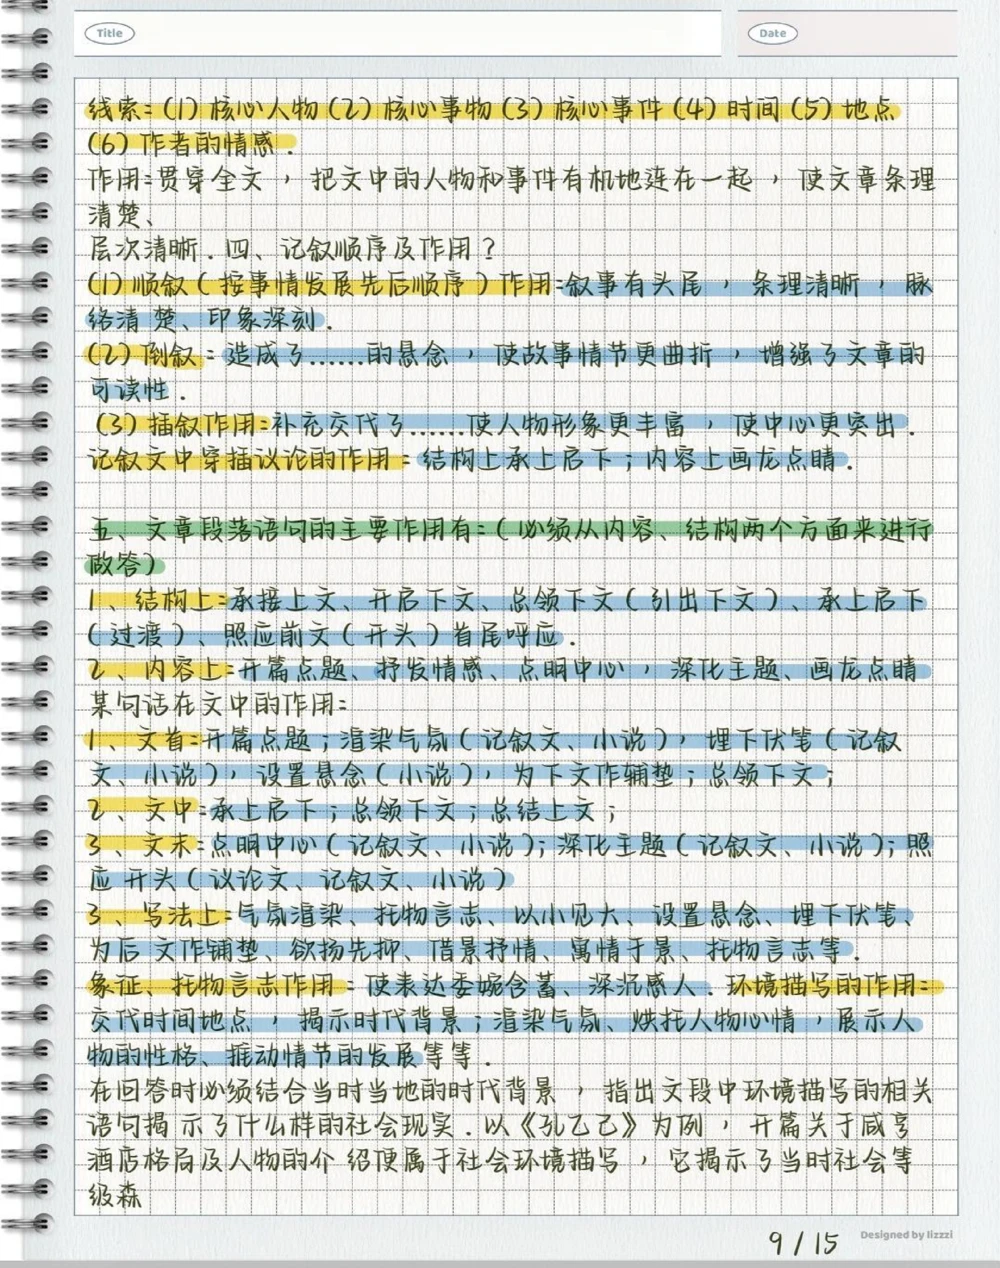 Title
Date
线索:(1)核心人物(2)核心事物(3)核心事件(4)时间(5)地点
(6)作者的情感.
作用:贯穿全文,把文中的人物和事件有机地连在一起,使文章条理
清楚、
层次清晰.四、记叙顺序及作用?
(1)顺叙(按事情发展先后顺序)作用:叙事有头尾,条理清晰,脉
络清 楚、印象深刻.
(2)倒叙:造成了......的悬念,使故事情节更曲折,增强了文章的
可读性.
(3)插叙作用:补充交代了......使人物形象更丰富,使中心更突出.
记叙文中穿插议论的作用:结构上承上启下;内容上画龙点睛.
五、文章段落语句的主要作用有:(必须从内容、结构两个方面来进行
做答)
1、结构上:承接上文、开启下文、总领下文(引出下文)、承上启下
(过渡)、照应前文(开头)首尾呼应.
2、内容上:开篇点题、抒发情感、点明中心,深化主题、画龙点睛
某句话在文中的作用:
1、文首:开篇点题;渲染气氛(记叙文、小说),埋下伏笔(记叙
文、小说),设置悬念(小说),为下文作辅垫;总领下文;
2、文中:承上启下;总领下文;总结上文;
3、文末:点明中心(记叙文、小说);深化主题(记叙文、小说);照
应 开头(议论文、记叙文、小说)
3、写法上:气氛渲染、托物言志、以小见大、设置悬念、埋下伏笔、
为后 文作铺垫、欲扬先抑、借景抒情、寓情于景、托物言志等.
象征、托物言志作用:使表达委婉含蓄、深沉感人.环境描写的作用:
交代时间地点,揭示时代背景;渲染气氛、烘托人物心情,展示人
物的性格、推动情节的发展等等.
在回答时必须结合当时当地的时代背景,指出文段中环境描写的相关
语句揭 示了什么样的社会现实.以《孔乙己》为例,开篇关于咸亨
酒店格局及人物的介 绍便属于社会环境描写,它揭示了当时社会等
级森
9/15
Designed by lizzzi